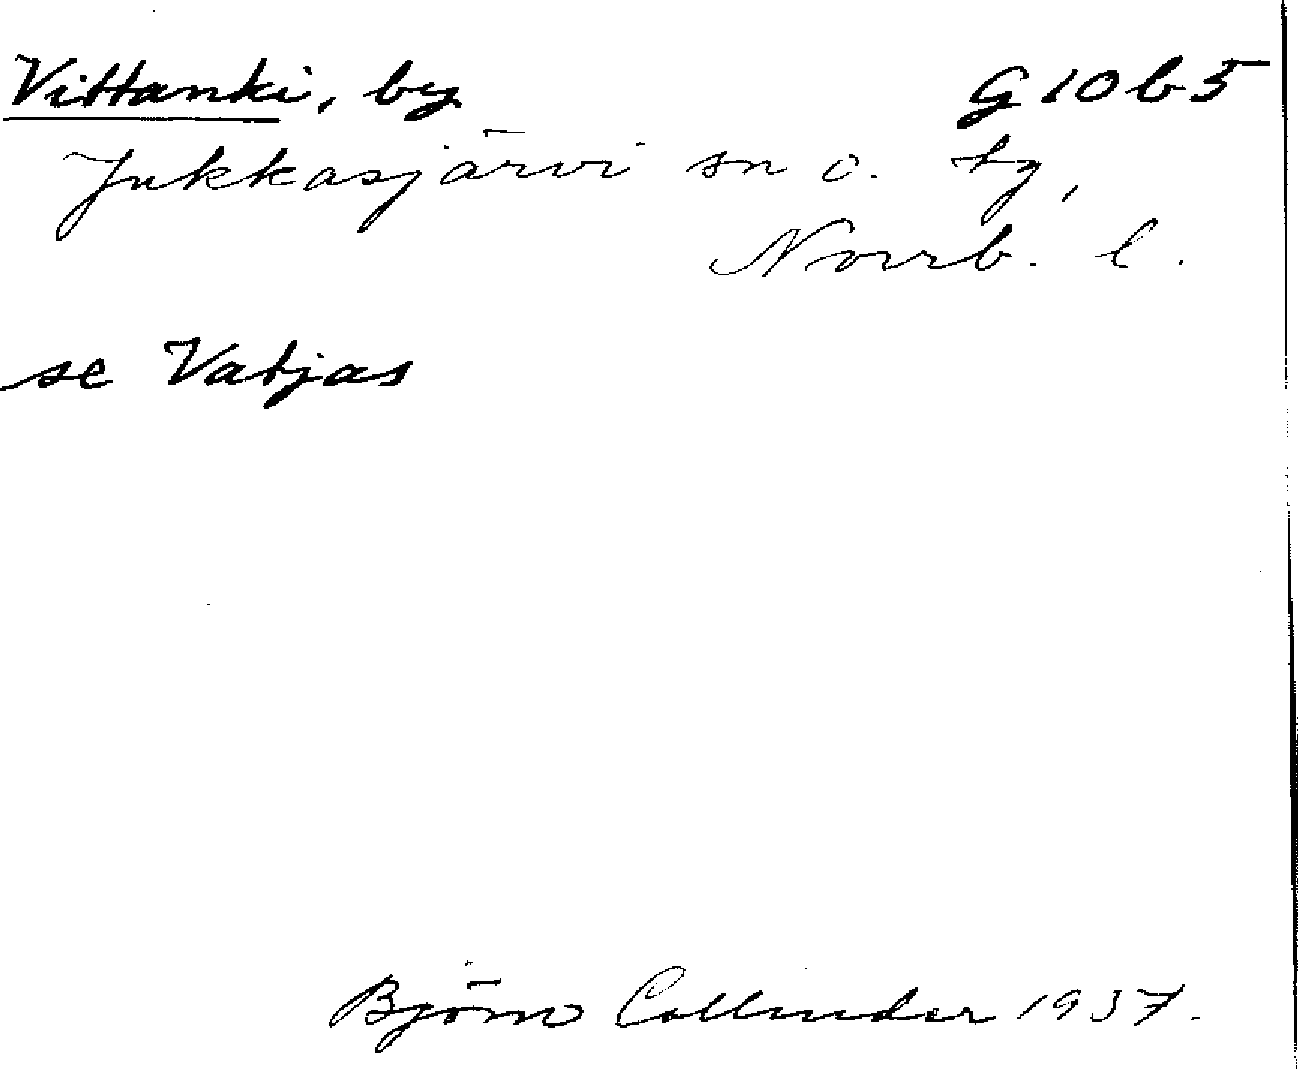 Vittanki, by G 10 b 5
Jukkasjärvi sn o. tg,
Norrb. l.
se Vatjas
Björn Collinder 1937.